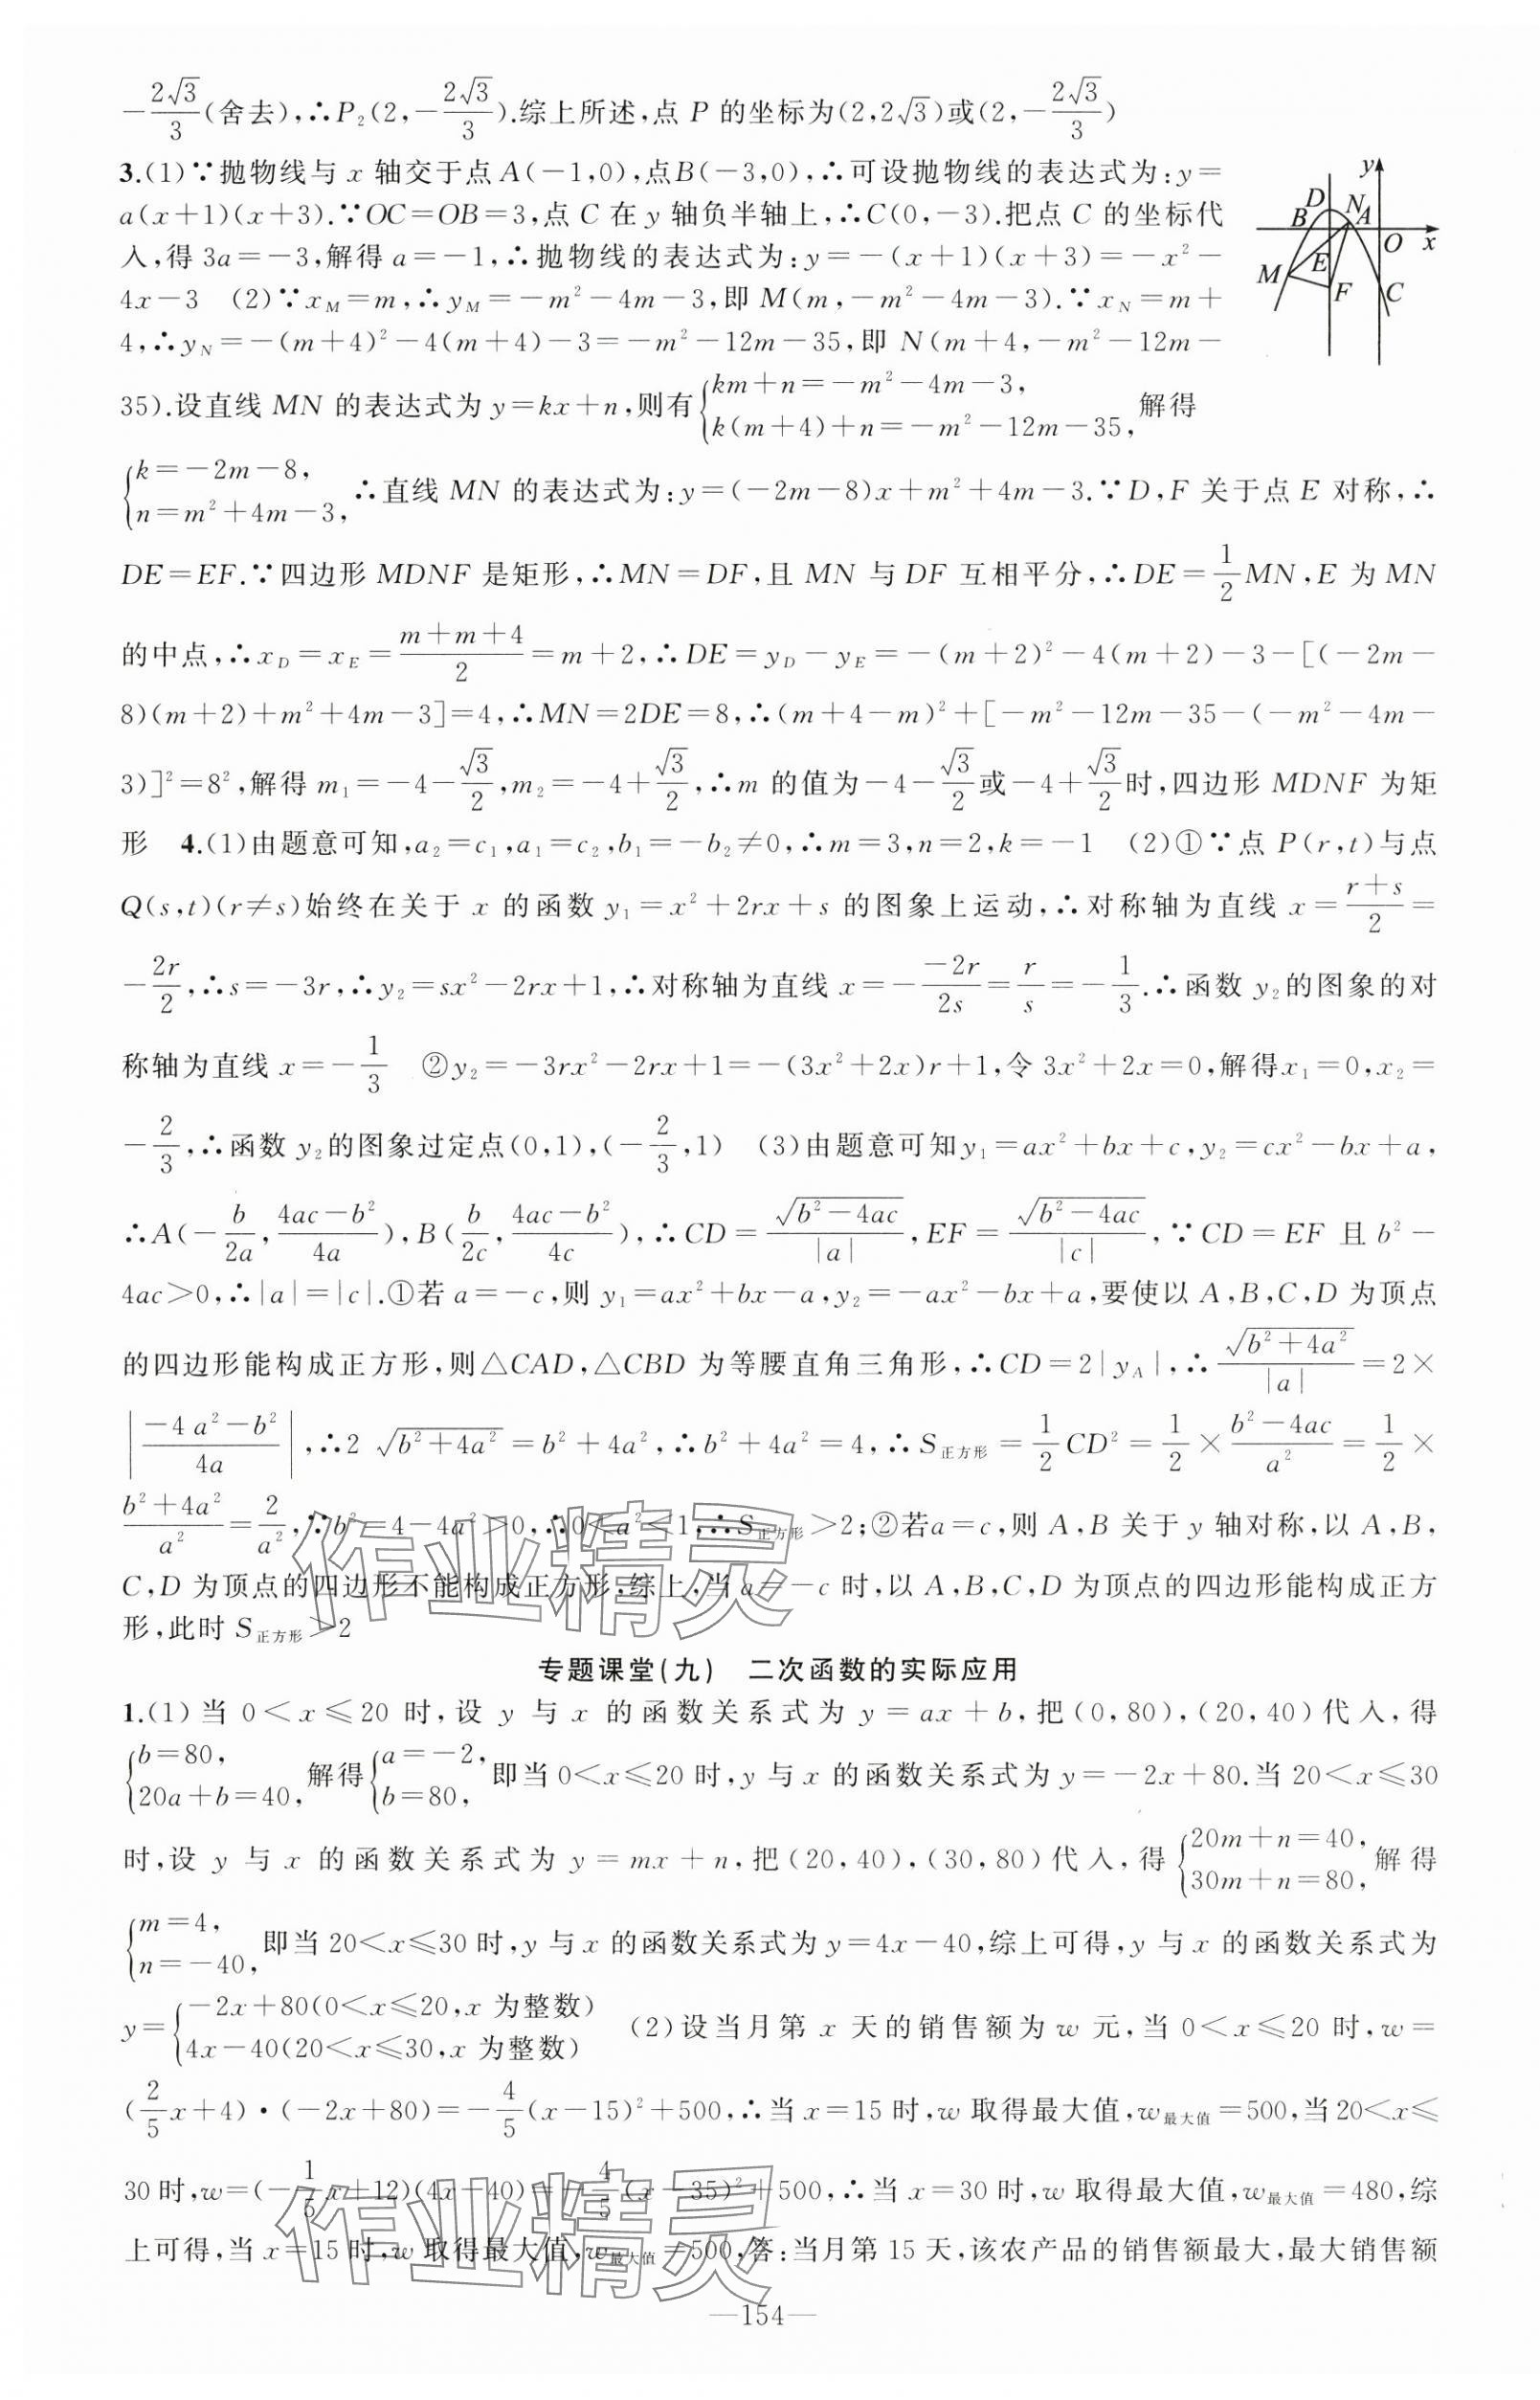 -2√3/3(舍去),∴P₂(2,-2√3/3).综上所述,点 P 的坐标为(2,2√3)或(2,-2√3/3)
3.(1)∵抛物线与 x 轴交于点A(-1,0),点B(-3,0),∴可设抛物线的表达式为:y=
a(x+1)(x+3).∵OC=OB=3,点 C 在 y 轴负半轴上,∴C(0,-3).把点 C 的坐标代
入,得 3a=-3,解得 a=-1,∴抛物线的表达式为:y=-(x+1)(x+3)=-x²-
4x-3 (2)∵x_M=m,∴y_M=-m²-4m-3,即 M(m,-m²-4m-3).∵x_N=m+
4,∴y_N=-(m+4)²-4(m+4)-3=-m²-12m-35,即 N(m+4,-m²-12m-
35).设直线 MN 的表达式为 y=kx+n,则有{km+n=-m²-4m-3, k(m+4)+n=-m²-12m-35,解得
y
D
N
B
A
O
x
M
E
F
C
{k=-2m-8, n=m²+4m-3,∴直线 MN 的表达式为:y=(-2m-8)x+m²+4m-3.∵D,F 关于点 E 对称,∴
DE=EF.∵四边形 MDNF 是矩形,∴MN=DF,且 MN 与 DF 互相平分,∴DE=1/2MN,E 为 MN
的中点,∴x_D=x_E=(m+m+4)/2=m+2,∴DE=y_D-y_E=-(m+2)²-4(m+2)-3-[(-2m-
8)(m+2)+m²+4m-3]=4,∴MN=2DE=8,∴(m+4-m)²+[-m²-12m-35-(-m²-4m-
3)]²=8²,解得 m₁=-4-√3/2,m₂=-4+√3/2,∴m 的值为-4-√3/2或-4+√3/2时,四边形 MDNF 为矩
形 4.(1)由题意可知,a₂=c₁,a₁=c₂,b₁=-b₂≠0,∴m=3,n=2,k=-1 (2)①∵点 P(r,t)与点
Q(s,t)(r≠s)始终在关于 x 的函数 y₁=x²+2rx+s 的图象上运动,∴对称轴为直线 x=(r+s)/2=
-2r/2,∴s=-3r,∴y₂=sx²-2rx+1,∴对称轴为直线 x=-(-2r)/2s=r/s=-1/3.∴函数 y₂的图象的对
称轴为直线 x=-1/3 ②y₂=-3rx²-2rx+1=-(3x²+2x)r+1,令 3x²+2x=0,解得x₁=0,x₂=
-2/3,∴函数 y₂的图象过定点(0,1),(-2/3,1) (3)由题意可知y₁=ax²+bx+c,y₂=cx²-bx+a,
∴A(-b/2a,(4ac-b²)/4a),B(b/2c,(4ac-b²)/4c),∴CD=√(b²-4ac)/|a|,EF=√(b²-4ac)/|c|,∵CD=EF 且 b²-
4ac>0,∴|a|=|c|.①若 a=-c,则 y₁=ax²+bx-a,y₂=-ax²-bx+a,要使以 A,B,C,D 为顶点
的四边形能构成正方形,则△CAD,△CBD 为等腰直角三角形,∴CD=2|y_A|,∴√(b²+4a²)/|a|=2×
|(-4a²-b²)/4a|,∴2√(b²+4a²)=b²+4a²,∴b²+4a²=4,∴S正方形=1/2CD²=1/2×(b²-4ac)/a²=1/2×
(b²+4a²)/a²=2/a²,∵b²=4-4a²>0,∴0<a²<1,∴S正方形>2;②若a=c,则 A,B 关于 y 轴对称,以 A,B,
C,D 为顶点的四边形不能构成正方形.综上,当 a=-c 时,以 A,B,C,D 为顶点的四边形能构成正方
形,此时 S正方形>2
作业精灵
专题课堂(九) 二次函数的实际应用
1.(1)当 0<x≤20 时,设 y 与 x 的函数关系式为 y=ax+b,把(0,80),(20,40)代入,得
{b=80, 20a+b=40,解得{a=-2, b=80,即当 0<x≤20 时,y 与 x 的函数关系式为 y=-2x+80.当 20<x≤30
时,设 y 与 x 的函数关系式为 y=mx+n,把(20,40),(30,80)代入,得{20m+n=40, 30m+n=80,解得
{m=4, n=-40,即当 20<x≤30 时,y 与 x 的函数关系式为 y=4x-40,综上可得,y 与 x 的函数关系式为
y={-2x+80(0<x≤20,x 为整数) 4x-40(20<x≤30,x 为整数) (2)设当月第 x 天的销售额为 w 元,当 0<x≤20 时,w=
(2/5x+4)·(-2x+80)=-4/5(x-15)²+500,∴当 x=15 时,w 取得最大值,w最大值=500,当 20<x≤
30 时,w=(-1/5x+12)(4x-40)=-4/5(x-35)²+500,∴当 x=30 时,w 取得最大值,w最大值=480,综
上可得,当 x=15 时,w 取得最大值,w最大值=500,答:当月第 15 天,该农产品的销售额最大,最大销售额
作业精灵
—154—